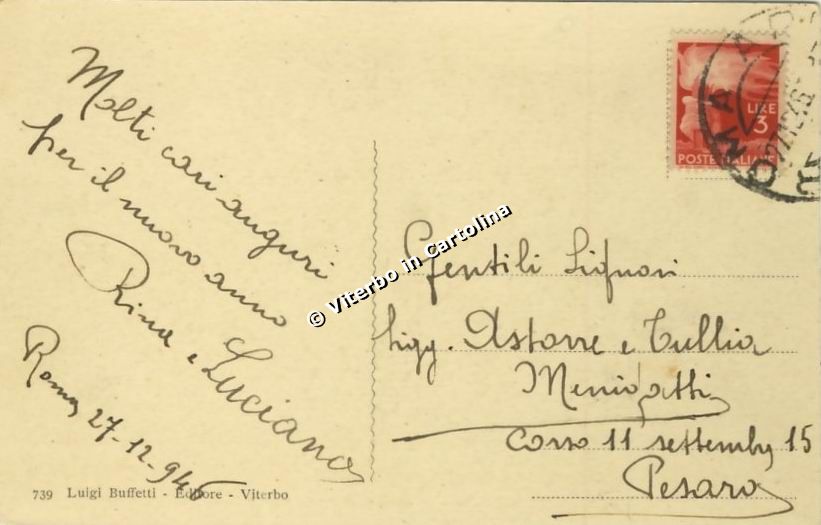 Molti cari auguri
per il nuovo anno
Rina e Luciano
Roma 27-12-946
739 Luigi Buffetti - Editore - Viterbo
© Viterbo in Cartolina
LIRE
3
POSTE ITALIANE
ROMA
27.12.46
Gentili Signori
Sigg. Astorre e Tullia
Menicatti
Corso 11 settembre 15
Pesaro